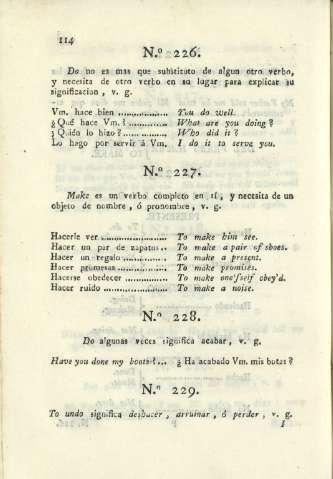 114
N.º 226.
Do no es mas que substituto de algun otro verbo,
y necesita de otro verbo en su lugar para explicar su
significacion, v. g.
Vm. hace bien .................. You do well.
¿ Qué hace Vm. ? ............... What are you doing ?
¿ Quién lo hizo ? ............... Who did it ?
Lo hago por servir á Vm. I do it to serve you.
N.º 227.
Make es un verbo completo en sí, y necesita de un
objeto de nombre, ó pronombre, v. g.
Hacerle ver ...................... To make him see.
Hacer un par de zapatos .. To make a pair of shoes.
Hacer un regalo ............... To make a present.
Hacer promesas ................. To make promises.
Hacerse obedecer .............. To make one'self obey'd.
Hacer ruido ...................... To make a noise.
N.º 228.
Do algunas veces significa acabar, v. g.
Have you done my boots ? ... ¿ Ha acabado Vm. mis botas ?
N.º 229.
To undo significa deshacer, arruinar, ó perder, v. g.
I